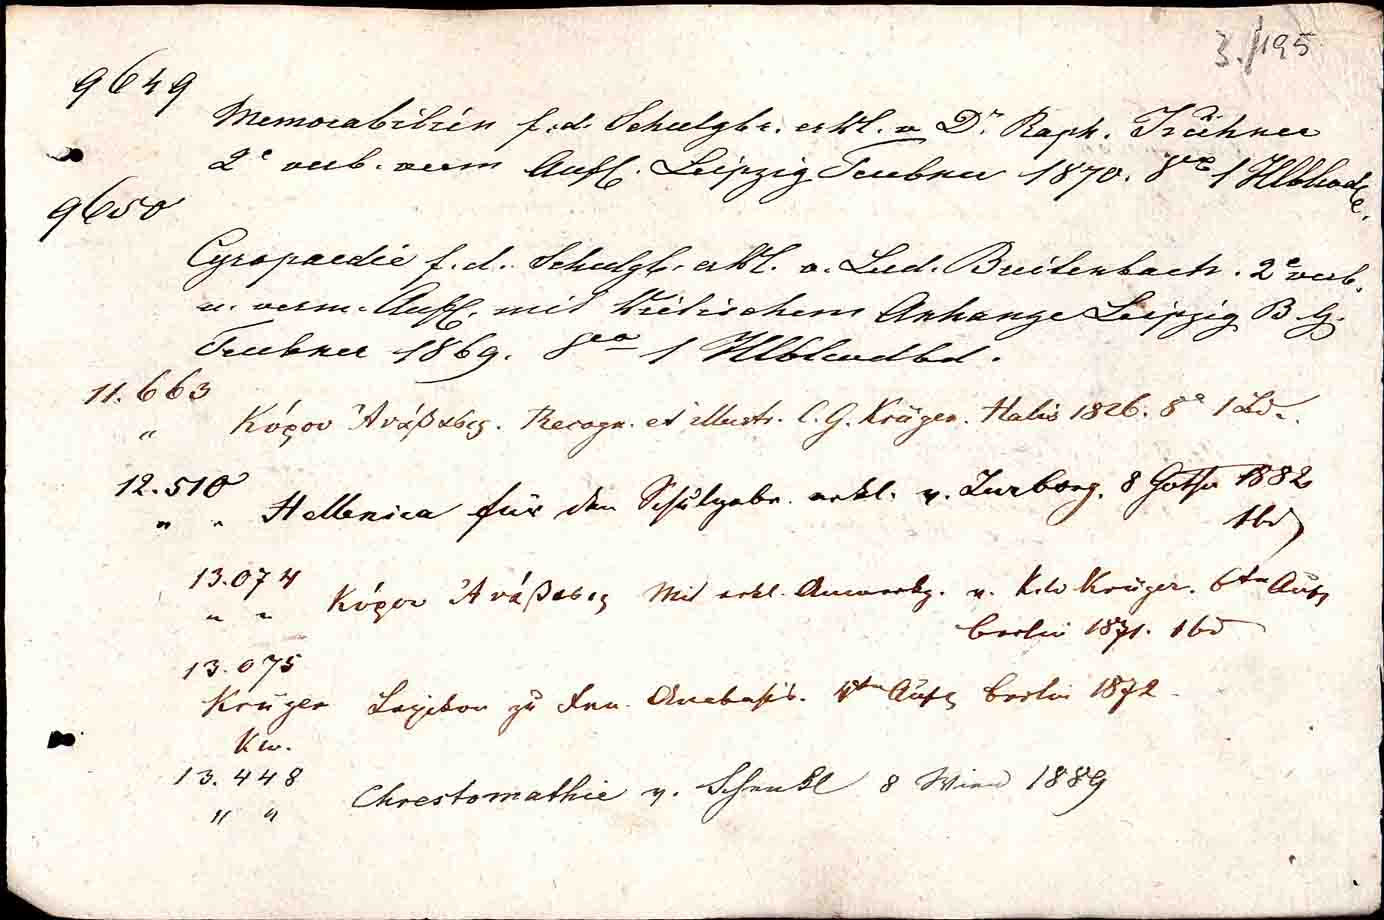 3./195
9649
Memorabilien f. d. Schulgbr. erkl. v Dr Raph. Kühner
2e verb. verm Aufl. Leipzig Teubner 1870. 8vo 1 Hlblwdbd.
9650
Cyropaedie f. d. Schulgb. erkl. v. Lud. Breitenbach. 2e verb.
u. verm. Aufl. mit kritischem Anhange Leipzig B. G.
Teubner 1869. 8vo 1 Hlblwdbd.
11.663
" Κύρου Ἀνάβασις. Recogn. et illustr. C. G. Krüger. Halis 1826. 8o 1 Bd.
12.510
" " Hellenica für den Schulgebr. erkl. v. Zurborg. 8 Gotha 1882
1 bd
13.074
" " Κύρου Ἀνάβασις Mit erkl. Anmerkg. v. K. W Krüger. 6te Aufl
Berlin 1871. 1 bd
13.075
Krüger Lexikon zu Xen. Anabasis. 4te Aufl Berlin 1872
K w.
13.448
" " Chrestomathie v. Schenkl 8 Wien 1889